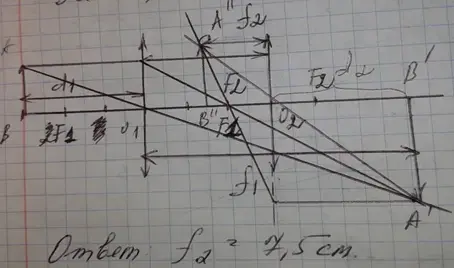 A'' f₂
A
d₁ F₂ F₂ d₂ B'
B 2F₁ O₁ B'' F₁ O₂
f₁
A'
Ответ f₂ = 7,5 см.